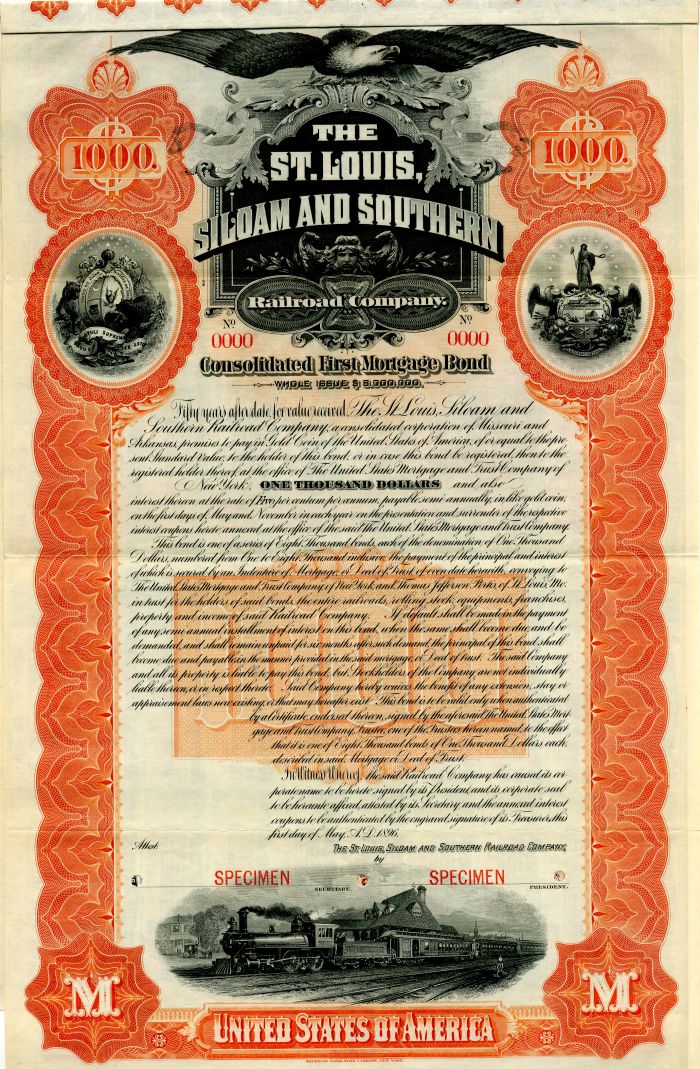 1000.
1000.
THE
ST. LOUIS,
SILOAM AND SOUTHERN
Railroad Company.
No
0000
No
0000
Consolidated First Mortgage Bond
WHOLE ISSUE $8,000,000.
Fifty years after date, for value received, The St. Louis, Siloam and
Southern Railroad Company, a consolidated corporation of Missouri and
Arkansas, promises to pay in Gold Coin of the United States of America, of or equal to the pre-
sent Standard Value, to the holder of this bond, or in case this bond be registered, then to the
registered holder thereof, at the office of The United States Mortgage and Trust Company of
New York, ONE THOUSAND DOLLARS and also
interest thereon at the rate of Five per centum per annum, payable semi annually, in like gold coin,
on the first days of May and November in each year on the presentation and surrender of the respective
interest coupons hereto annexed at the office of the said The United States Mortgage and Trust Company.
This bond is one of a series of Eight Thousand bonds, each of the denomination of One Thousand
Dollars, numbered from One to Eight Thousand inclusive, the payment of the principal and interest
of which is secured by an Indenture of Mortgage, or Deed of Trust, of even date herewith, conveying to
The United States Mortgage and Trust Company of New York, and Thomas Jefferson Portis, of St. Louis, Mo.
in trust for the holders of said bonds, the entire railroads, rolling stock, equipments, franchises,
property and income of said Railroad Company. If default shall be made in the payment
of any semi annual installment of interest on this bond, when the same shall become due, and be
demanded, and shall remain unpaid for six months after such demand, the principal of this bond shall
become due and payable in the manner provided in the said mortgage, or Deed of Trust. The said Company
and all its property is liable to pay this bond, but Stockholders of the Company are not individually
liable thereon, or in respect thereto. Said Company hereby waives the benefit of any extension, stay or
appraisement laws now existing, or that may hereafter exist. This bond is to be valid only when authenticated
by a Certificate endorsed thereon, signed by the aforesaid The United States Mort-
gage and Trust Company, Trustee, one of the Trustees herein named, to the effect
that it is one of Eight Thousand bonds of One Thousand Dollars each,
described in said Mortgage or Deed of Trust.
In Witness Whereof, the said Railroad Company has caused its cor-
porate name to be hereto signed by its President, and its corporate seal
to be hereunto affixed, attested by its Secretary and the annexed interest
coupons to be authenticated by the engraved signature of its Treasurer, this
first day of May, A.D. 1896.
Attest:
THE ST. LOUIS, SILOAM AND SOUTHERN RAILROAD COMPANY,
by
SPECIMEN
SPECIMEN
SECRETARY.
PRESIDENT.
M
M
UNITED STATES OF AMERICA
AMERICAN BANK NOTE COMPANY, NEW YORK.